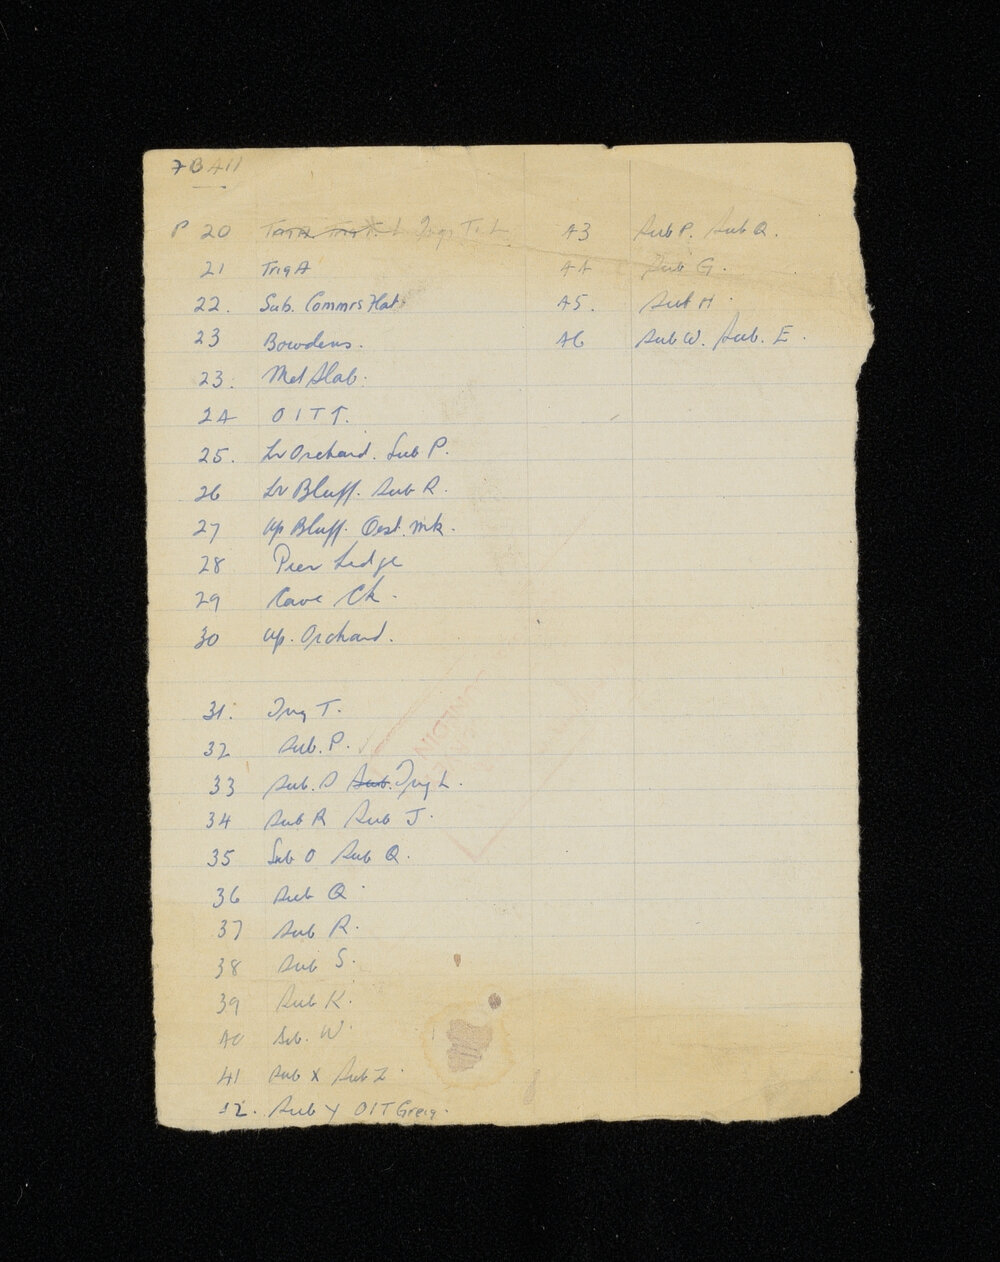 7BA11
P 20 Trig T. L
21 Trig A
22. Sub. Commrs Flat.
23 Bowdens.
23. Met Slab.
24 OITT.
25. Lr Orchard. Sub P.
26 Lr Bluff. Sub R.
27 Up Bluff. Oest. Mk.
28 Pier Ledge
29 Cave Ck.
30 Up. Orchard.
31. Trig T.
32 Sub. P.
33 Sub. S Sub. Trig L.
34 Sub R Sub J.
35 Sub O Sub Q.
36 Sub Q.
37 Sub R.
38 Sub S.
39 Sub K.
40 Sub. W.
41 Sub X Sub Z
42. Sub Y OIT Greig.
43 Sub P. Sub Q.
44 Sub G.
45. Sub H.
46 Sub W. Sub. E.